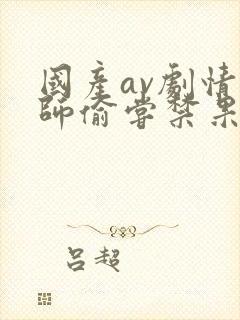 國產av劇情
師偷嘗禁果
吕超